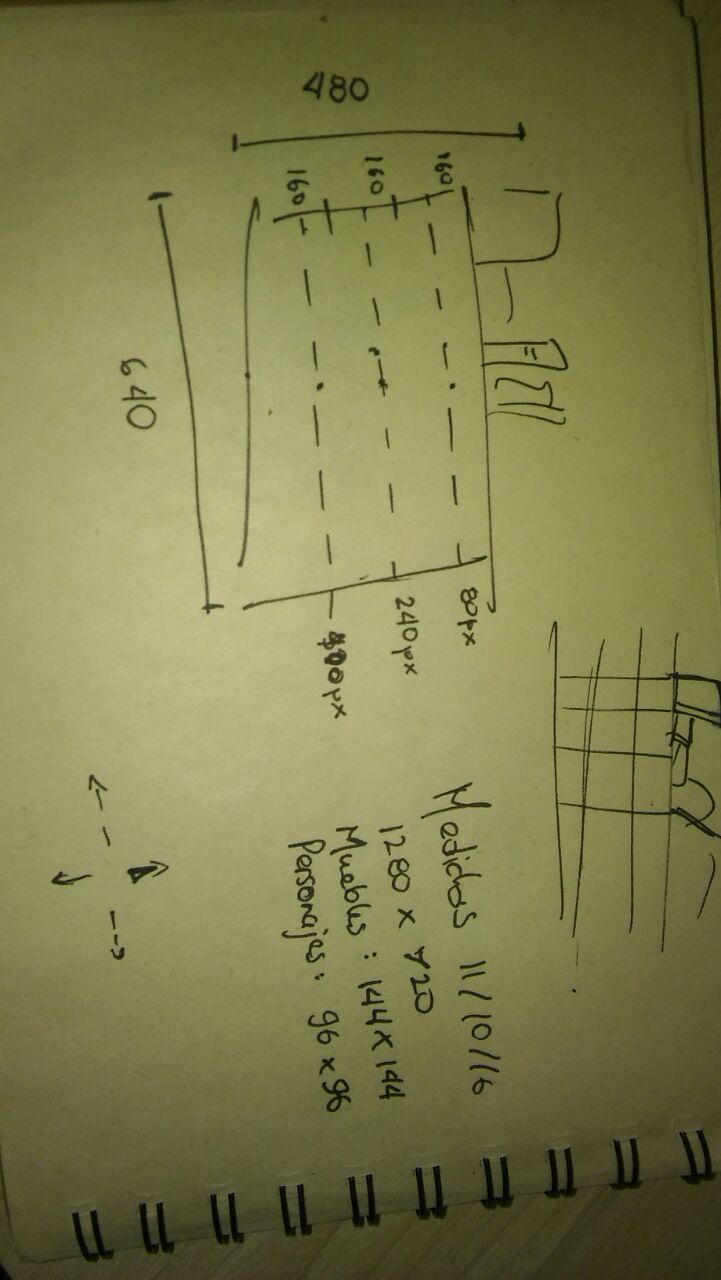 480
160
160
160
640
80px
240px
400px
Medidas 11/10/16
1280 x 720
Muebles: 144x144
Personajes: 96x96